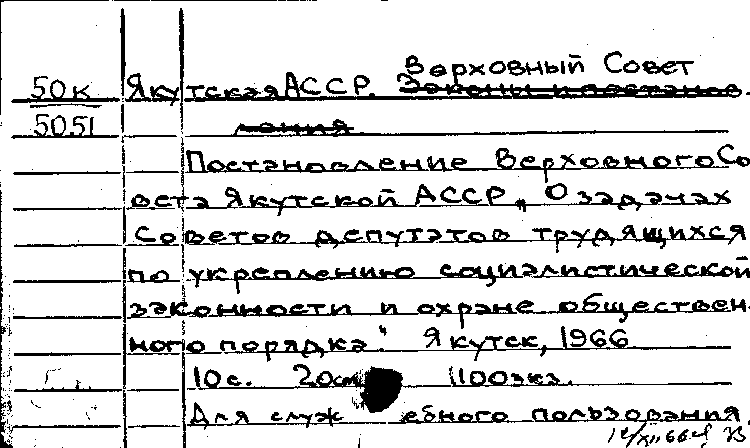 Верховный Совет
50к Якутская АССР. Законы и постанов-
5051 ления
Постановление Верховного Со
вета Якутской АССР „О задачах
Советов депутатов трудящихся
по укреплению социалистической
законности и охране обществен-
ного порядка." Якутск, 1966
10с. 20см 1100экз.
Для служебного пользования